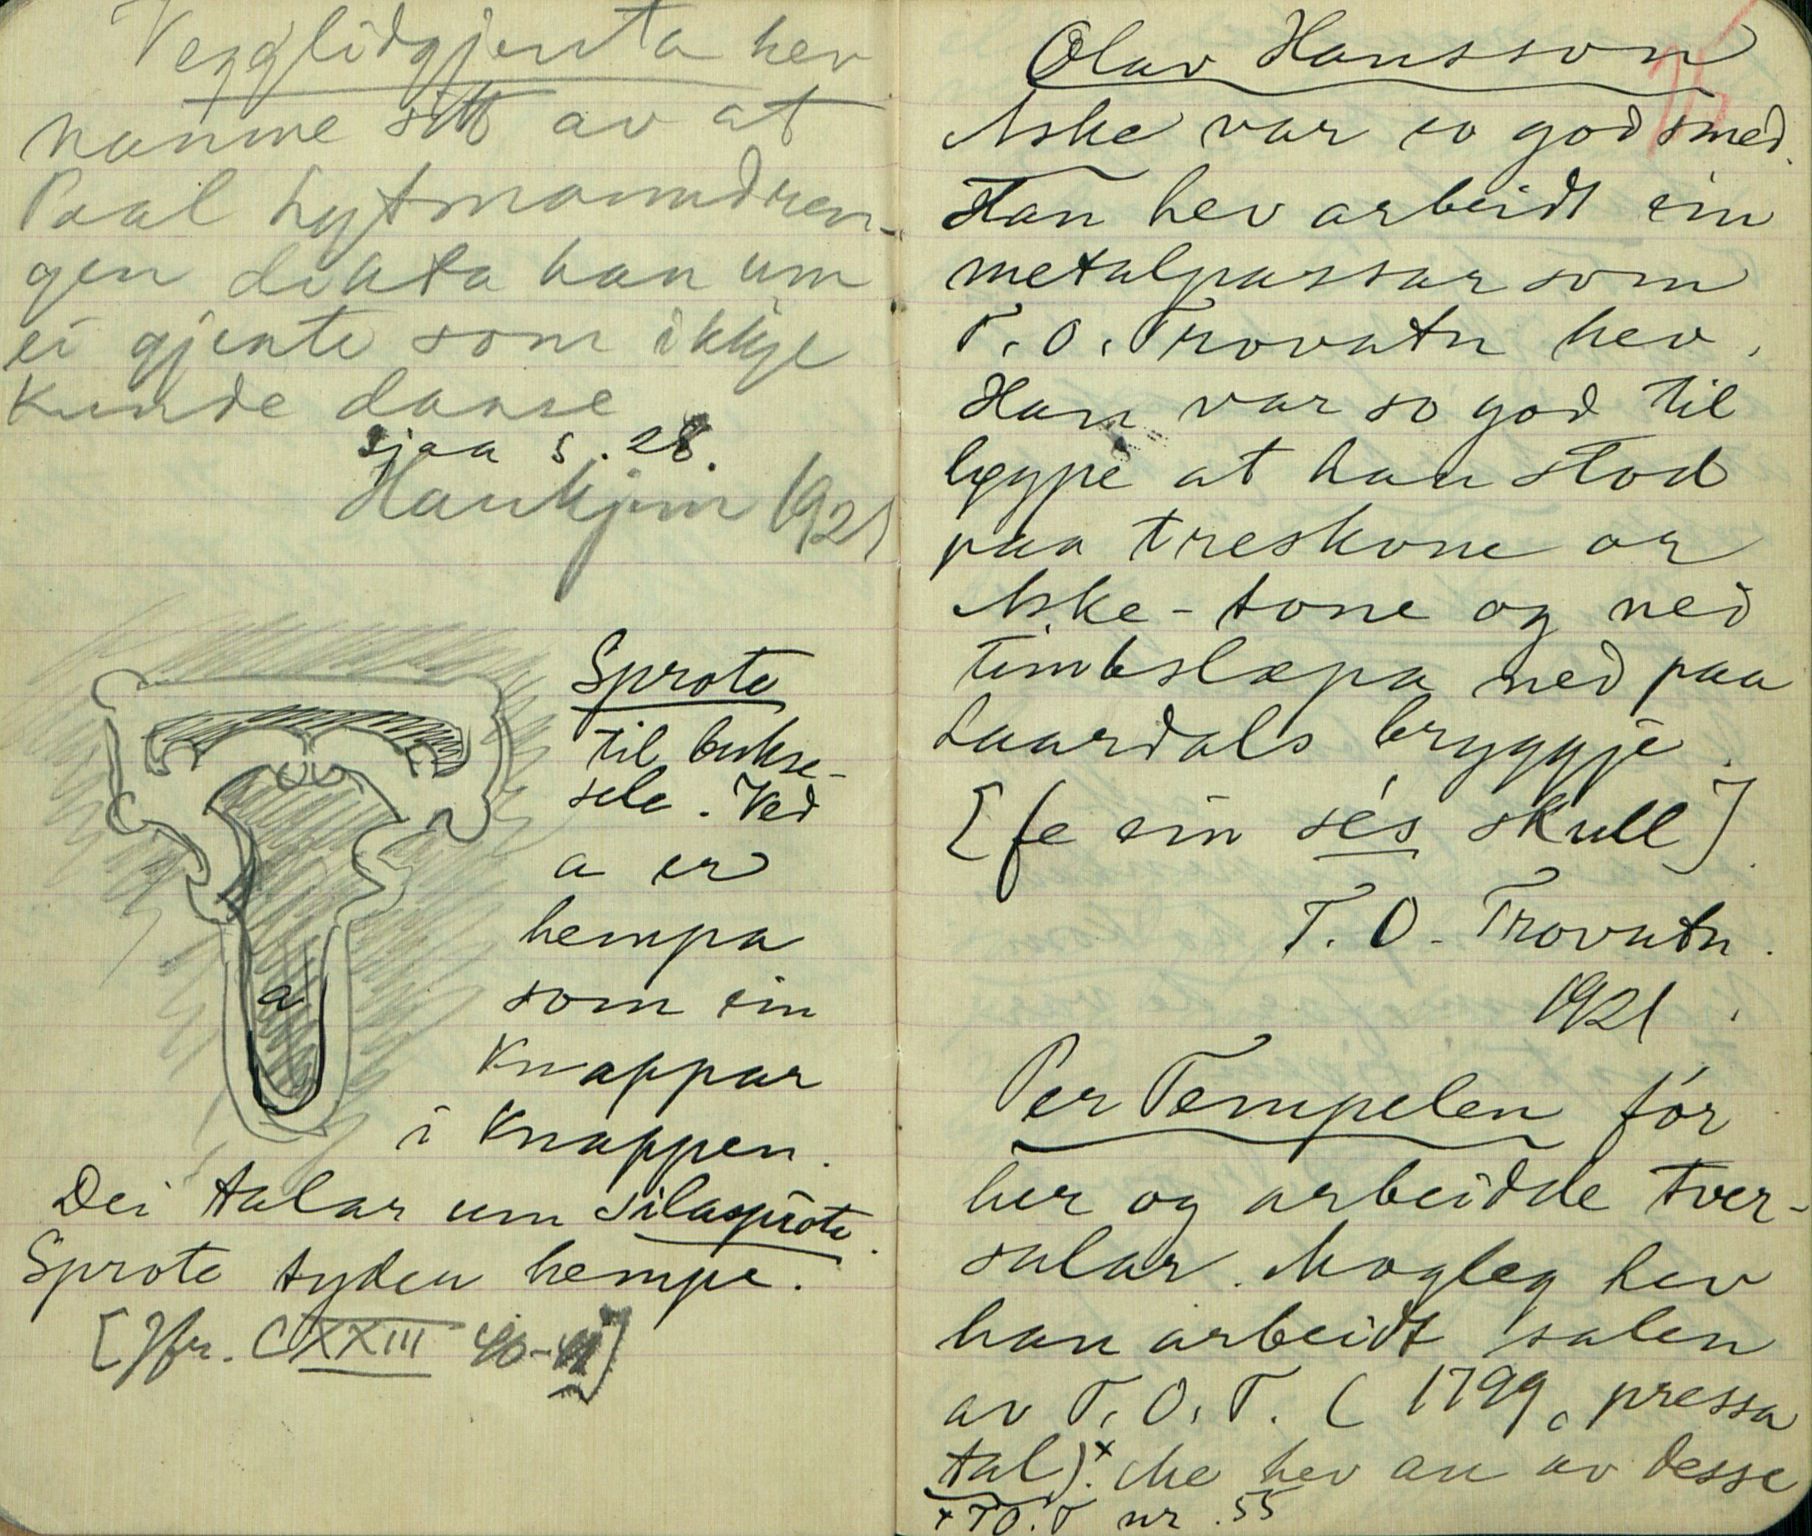 Vegglidgjenta hev
namne sitt av at
Paal Lytmannsdren-
gen dikta han um
ei gjente som ikkje
kunde danse
sjaa s. 28.
Haukjem 1921
Sprote
til bukse-
sele. Ved
a er
hempa
som ein
knappar
i knappen.
a
Dei talar um silasprote.
Sprote tyder hempe.
[Jfr. CXXIII 40-41]
Olav Hansson
Aske var so god smed.
Han hev arbeidt ein
metalpassar som
T. O. Trovatn hev.
Han var so god til
løype at han stod
paa treskone or
Aske-tone og ned
timbslæpa ned paa
Laardals bryggje.
[fe ein sés skull]
T. O. Trovatn.
1921.
Per Tempelen fór
her og arbeidde tver-
salar. Mogleg hev
han arbeidt salen
av T. O. T. (1799, pressa
tal).x Me hev an av desse
x T.O.T nr. 55